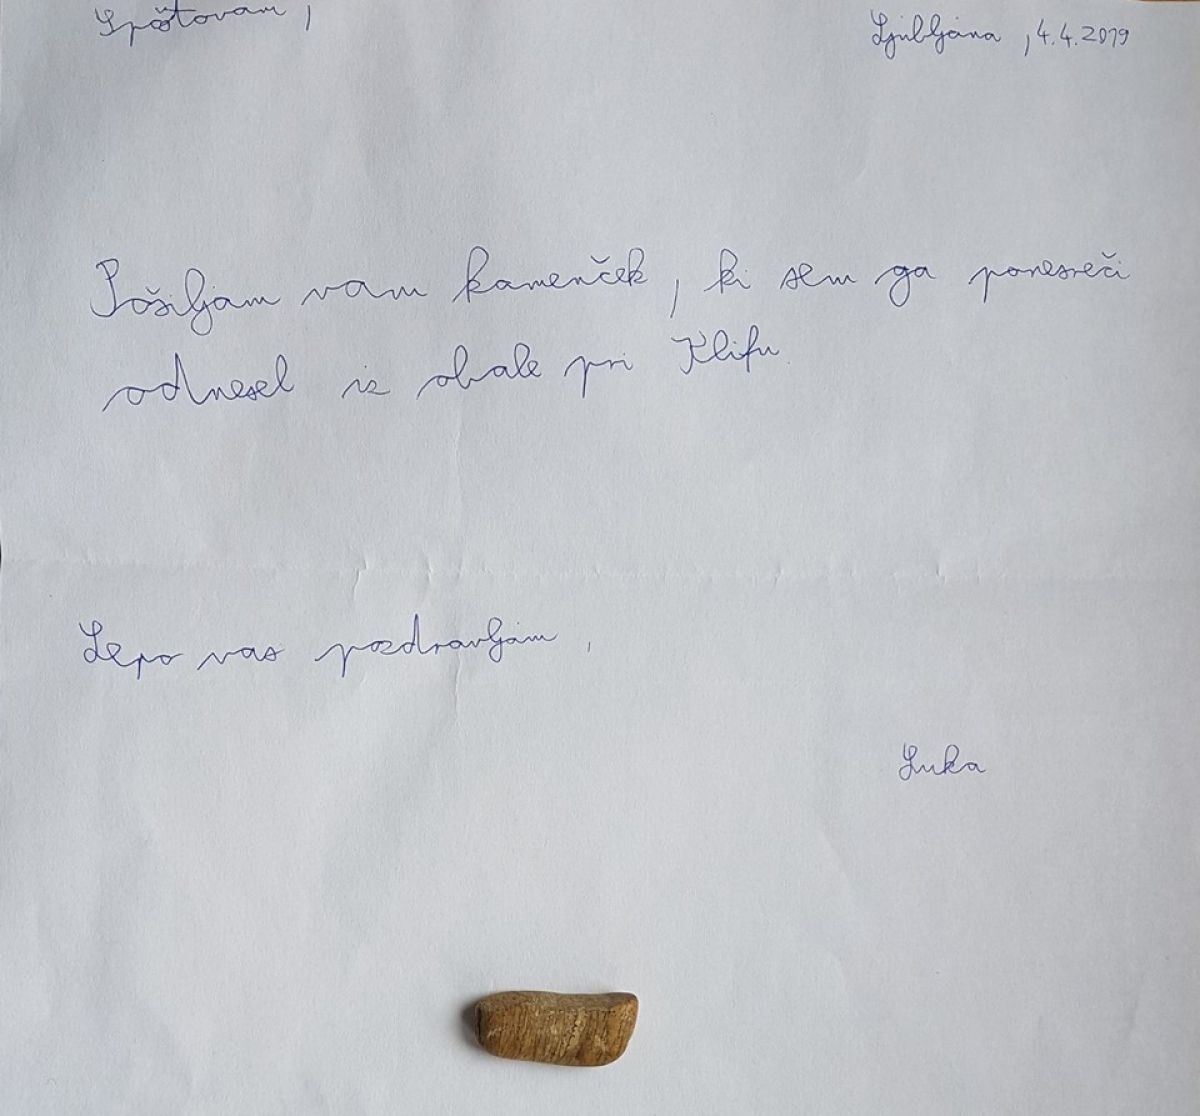 Spoštovani,
Ljubljana, 4.4.2019
Pošiljam vam kamenček, ki sem ga ponesreči
odnesel iz obale pri Klifu.
Lepo vas pozdravljam,
Luka